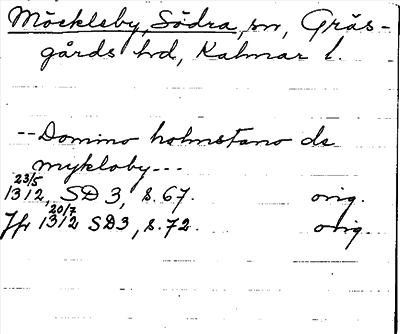 Möckleby, Södra, sn, Gräs-
gårds hd, Kalmar l.
-- Domino holmstano de
mykloby ---
23/5
1312, SD 3, s. 67. orig.
20/7
Jfr 1312 SD3, s. 72. orig.